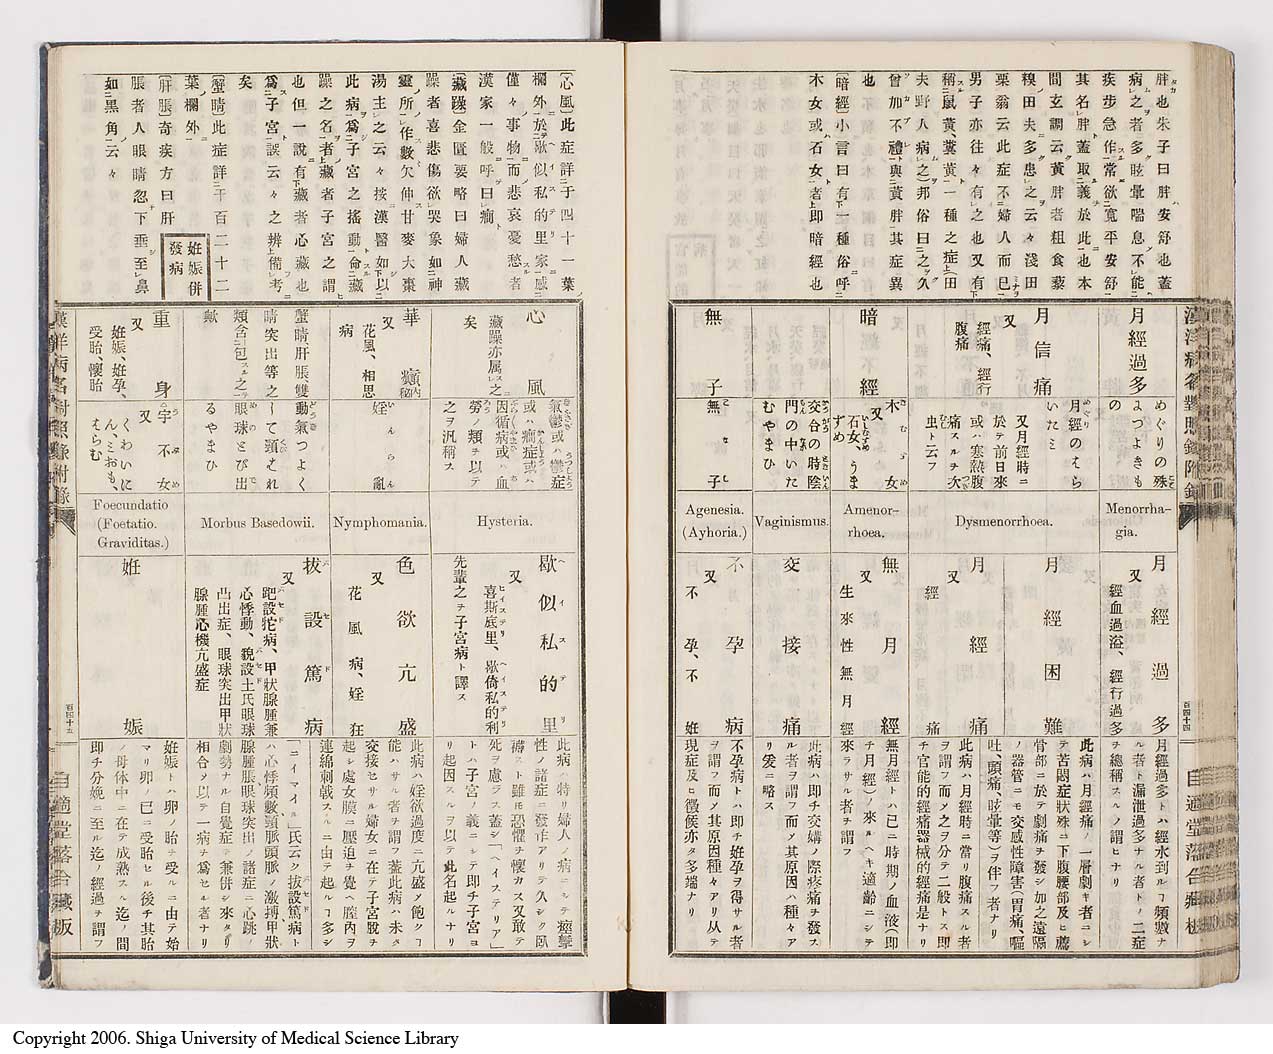 胖也朱子曰胖安舒也蓋
病之者多眩暈喘息不能
疾步急作常欲寬平安舒
其名胖蓋取義於此也本
間玄調云黃胖者粗食藜
糗田夫多患之云々淺田
栗翁云此症不婦人而已
男子亦往々有之也又有
稱鼠黃、糞黃一種之症田
夫野人病之邦俗曰之久
曾加不禮與黃胖其症異
也
〔暗經〕小言曰有一種俗呼
木女或石女者卽暗經也
月經過多
めぐりの殊
よつよきも
の
Menorrha-
gia.
月經過多
又 經血過溢、經行過多
月經過多トハ經水到ルヿ頻數ナ
ル者ト漏泄過多ナル者トノ二症
ヲ總稱スルノ謂ヒナリ
月信痛
又 經痛、經行
腹痛
月經のえら
いたミ
又月經時ニ
於テ前日來
或ハ寒熱腹
痛スルヲ次
虫ト云フ
Dysmenorrhoea.
月經困難
此病ハ月經痛ノ一層劇キ者ニシ
テ苦悶症狀殊ニ下腹腰部及ヒ薦
骨部ニ於テ劇痛ヲ發シ加之遠隔
ノ器管ニモ交感性障害(胃痛、嘔
吐、頭痛、眩暈等)ヲ伴フ者ナリ
月經痛
又 經痛
此病ハ月經時ニ當リ腹痛スル者
ヲ謂フ而メ之ヲ分テ二般トス卽
チ官能的經痛器械的經痛是ナリ
暗經
木女
又
石女、うま
ずめ
Amenor-
rhoea.
無月經
又 生來性無月經
無月經トハ已ニ時期ノ血液(卽
チ月經)ノ來ルヘキ適齡ニシテ
來ラサル者ヲ謂フ
交合の時陰
門の中いた
むやまひ
Vaginismus.
交接痛
此病ハ卽チ交媾ノ際疼痛ヲ發ス
ル者ヲ謂フ而メ其原因ハ種々ア
リ爰ニ略ス
無子
無子
Agenesia.
(Ayhoria.)
不孕病
又 不孕、不妊
不孕病トハ卽チ妊孕ヲ得サル者
ヲ謂フ而メ其原因種々アリ从テ
現症及ヒ徵候亦タ多端ナリ
百四十四
〔心風〕此症詳于四十一葉
欄外於歇似私的里家感
僅々事物而悲哀憂愁者
漢家一般呼曰癇
〔藏躁〕金匱要略曰婦人藏
躁者喜悲傷欲哭象如神
靈所作數欠伸甘麥大棗
湯主之云々按漢醫如以
此病爲子宮之搖動命藏
躁之名者藏者子宮之謂
也但一說有藏者心藏也
爲子宮誤云々之辨備考
矣
〔蟹睛〕此症詳于百二十二
葉欄外
〔肝脹〕奇疾方曰肝
脹者人眼睛忽下垂至鼻
如黑角云々
妊娠併
發病
心風
藏躁亦属之
矣
氣鬱或ハ鬱症
或ハ癇症或ハ
因循病或ハ血
勞ノ類ヲ以テ
之ヲ汎稱ス
Hysteria.
歇似私的里
又 喜斯底里、歇倚私的利
先輩之ヲ子宮病ト譯ス
此病ハ特リ婦人ノ病ニシテ痙攣
性ノ諸症ニ發作アリテ久シク臥
褥スト雖モ恐懼ヲ懷カス又敢テ
死ヲ慮ラス蓋シ「ヘイステリア」
トハ子宮ノ義ニシテ卽チ子宮ヨ
リ起因スルヲ以テ此名起ルナリ
華癲
又 花風、相思
病
婬亂
Nymphomania.
色欲亢盛
又 花風病、婬狂
此病ハ婬欲過度ニ亢盛メ飽クヿ
能ハサル者ヲ謂フ蓋此病ハ未タ
交接セサル婦女ニ在テ子宮脫ヲ
起シ處女膜ニ壓迫ヲ覺ヘ膣內ヲ
連綿刺戟スルニ由テ起ルヿ多シ
蟹睛、肝脹雙
睛突出等之
類含包之
歟
動氣つよく
して頸はれ
眼球とび出
るやまひ
Morbus Basedowii.
拔設篤病
又 跁設牠病、甲狀腺腫兼
心悸動、貌設土氏眼球
凸出症、眼球突出甲狀
腺腫心機亢盛症
「ニイマイル」氏云ク拔設篤病ト
ハ心悸頻數頸脈頭脈ノ激搏甲狀
腺腫脹眼球突出ノ諸症ニ心跳ノ
劇勢ナル自覺症ヲ兼併シ來タリ
相合メ以テ一病ヲ爲セル者ナリ
重身
又 妊娠、妊孕、
受胎、懷胎
孕女
又 くわいに
ん、ミおも、
はらむ
Foecundatio
(Foetatio.
Graviditas.)
妊娠
妊娠トハ卵ノ胎ヲ受ルニ由テ始
マリ卵ノ已ニ受胎セル後チ其胎
ノ母体中ニ在テ成熟スル迄ノ間
卽チ分娩ニ至ル迄ノ經過ヲ謂フ
百四十五
Copyright 2006. Shiga University of Medical Science Library